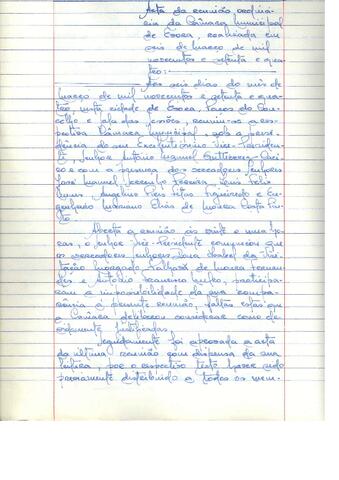 Acta da reunião ordiná-
ria da Câmara Municipal
de Évora, realizada em
seis de março de mil
novecentos e setenta e qua-
tro:
Aos seis dias do mês de
março de mil novecentos e setenta e qua-
tro, nesta cidade de Évora, Paços do Con-
celho e sala das sessões, reuniu-se a res-
pectiva Câmara Municipal, sob a presi-
dência do seu Excelentíssimo Vice-Presiden-
te, senhor António Manuel
e com a presença dos vereadores senhores
José Manuel Pereira,
Nunes, Angelino Pires Figueiredo e En-
genheiro Mariano Elias de Moura Costa Pin-
to.
Aberta a reunião às vinte e uma ho-
ras, o senhor Vice-Presidente comunicou que
os vereadores senhores
de Moura Fernan-
des e António participa-
ram a impossibilidade da sua compa-
rência à presente reunião, faltas estas que
a Câmara deliberou considerar como de-
vidamente justificadas.
Seguidamente foi aprovada a acta
da última reunião com dispensa da sua
leitura, por o respectivo texto haver sido
previamente distribuído a todos os mem-